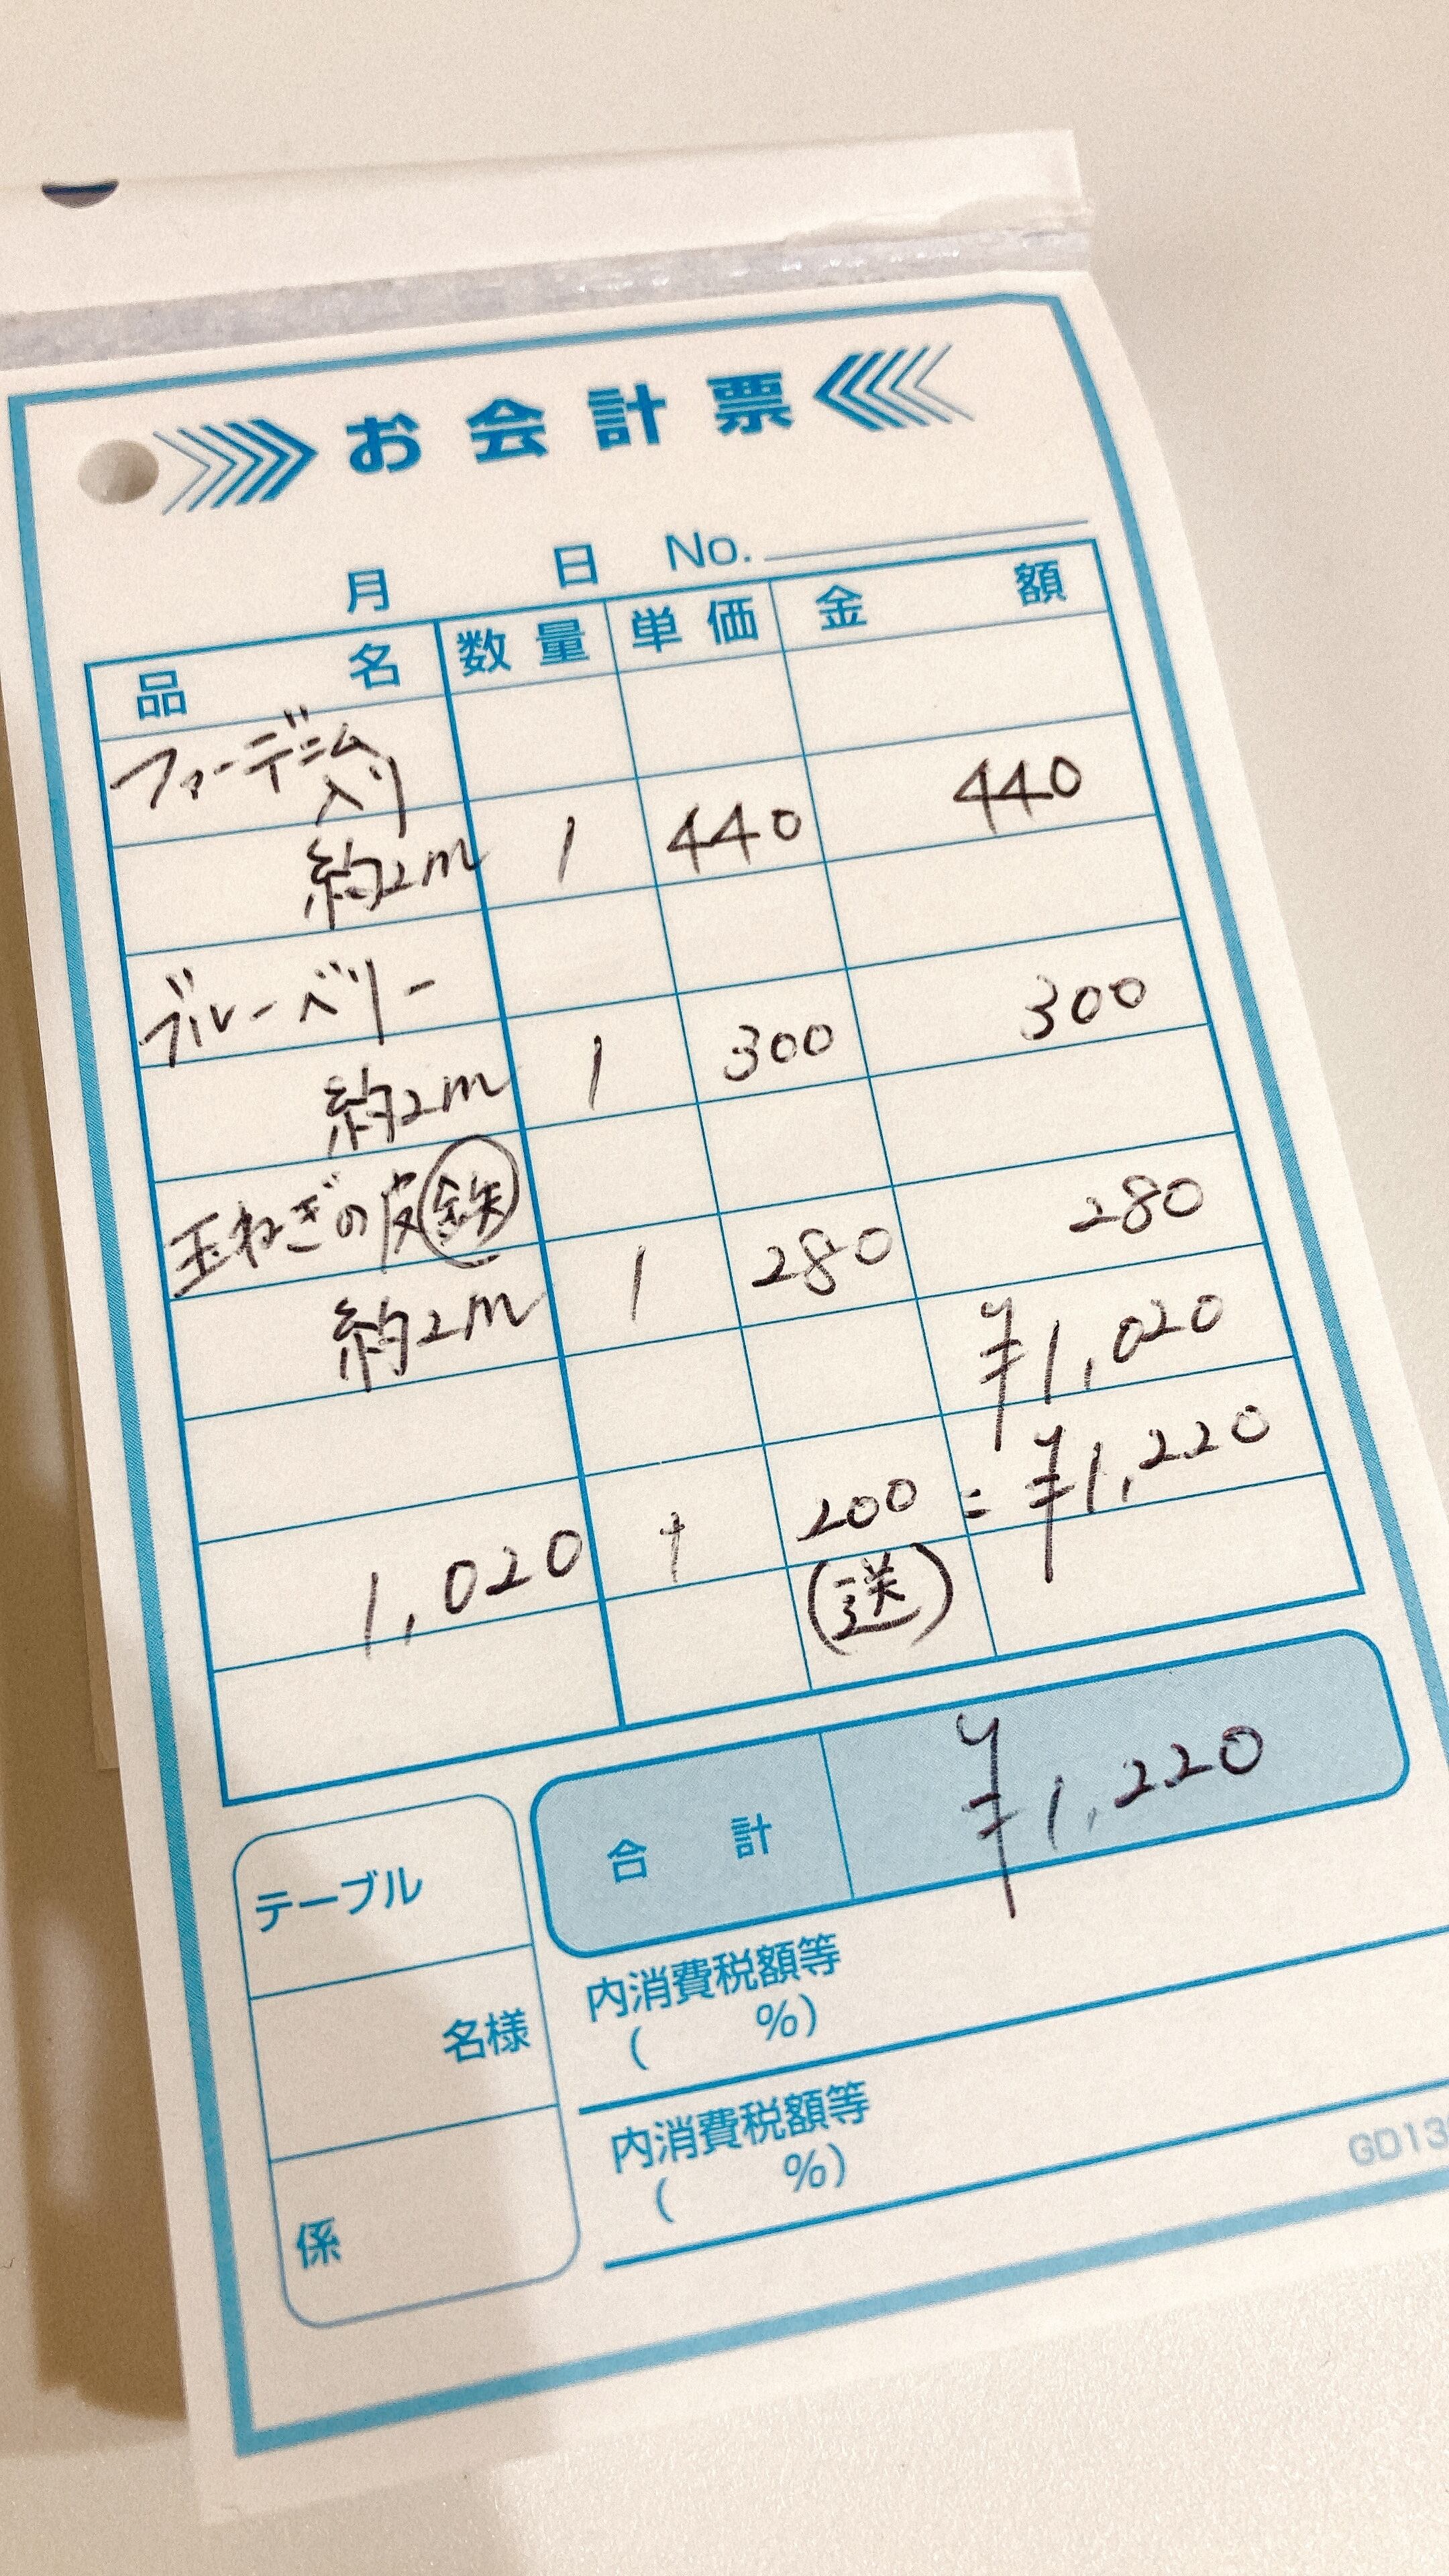 お会計票
月 日 No.
品名 数量 単価 金額
ファーデニム
入り
約2m 1 440 440
ブルーベリー
約2m 1 300 300
玉ねぎの皮鉄
約2m 1 280 280
¥1,020
1,020 + 200 = ¥1,220
(送)
合計 ¥1,220
テーブル
名様
係
内消費税額等
( %)
内消費税額等
( %)
GD13